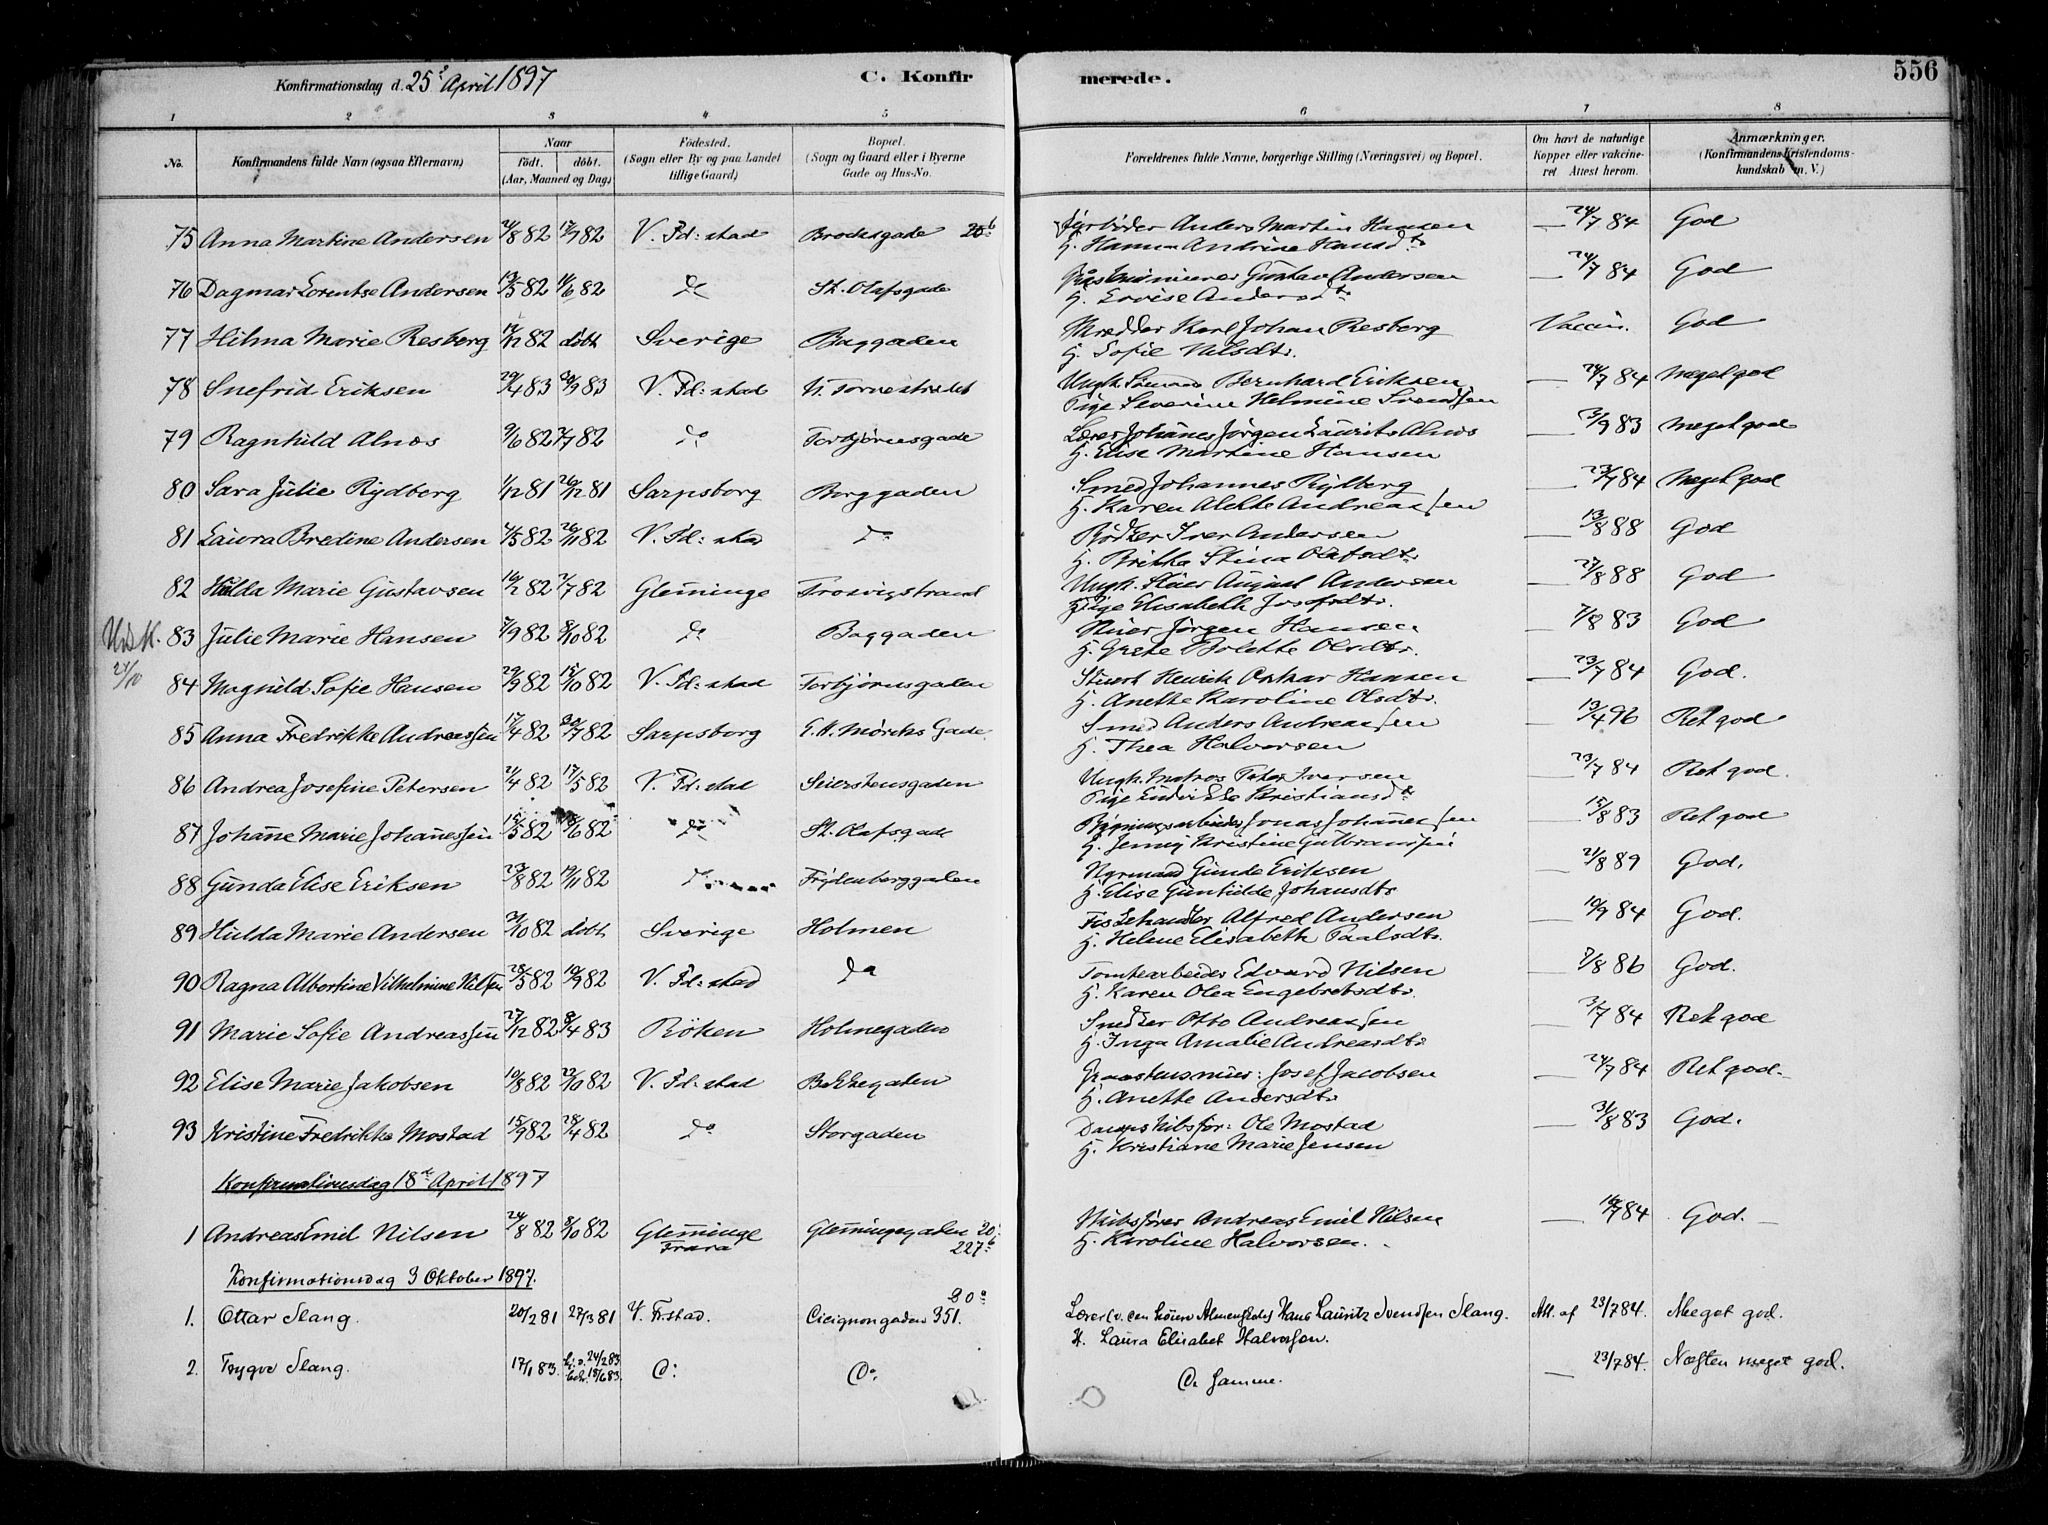 Konfirmationsdag d. 25de April 1897
C. Konfirmerede.
556
1 2 3 4 5 6 7 8
No. Konfirmandens fulde Navn (ogsaa Efternavn) Naar født. døbt. (Aar, Maaned og Dag) Fødested. (Sogn eller By og paa Landet tillige Gaard) Bopæl. (Sogn og Gaard eller i Byerne Gade og Hus-No. Forældrenes fulde Navne, borgerlige Stilling (Næringsvei) og Bopæl. Om havt de naturlige Kopper eller vakcineret Attest herom. Anmærkninger. (Konfirmandens Kristendomskundskab m. V.)
75 Anna Martine Andersen 21/8 82 17/9 82 V. Fd:stad Brochsgade 20b Fyrbøder Anders Martin Hansen — 24/7 84 God
H. Hanna Andrine Hansdtr
76 Dagmar Lorentse Andersen 13/5 82 11/6 82 do St. Olafsgade Gustav Andersen — 24/7 84 God
H. Lovise Andersdtr
77 Hilma Marie Resberg 82 døbt Sverige Baggaden Karl Johan Resberg Vaccin. God
H. Sofie Nilsdtr.
78 Snefrid Eriksen 29/4 83 83 V. Fd:stad Ungk. Sømand Bernhard Eriksen — 24/7 84 Meget god
Pige Severine Helmine Svendsen
79 Ragnhild Alnæs 9/6 82 82 do Torbjørnsgade Lærer Johannes Jørgen Laurits Alnæs — 3/9 83 Meget god
H. Elise Martine Hansen
80 Sara Julie Rydberg 1/12 81 26/12 81 Sarpsborg Borggaden Smed Johannes Rydberg — 23/7 84 Meget god
H. Karen Alette Andreassen
81 Laura Bredine Andersen 4/5 82 26/11 82 V. Fd:stad do Iver Andersen — 13/8 88 God
H. Britta Stina Olafsdtr
82 Hulda Marie Gustavsen 82 2/7 82 Glemminge Trosvigstrand Ungk. August Andersen — 27/8 88 God
Pige Elisabeth Josefsdtr.
Ud K. 83 Julie Marie Hansen 9/9 82 8/10 82 do Baggaden Jørgen Hansen — 7/8 83 God
H. Grete Bolette Olsdtr.
84 Magnild Sofie Hansen 29/9 82 15/10 82 V. Fd:stad Torbjørnsgaden Stuert Henrik Oskar Hansen — 23/7 84 God.
H. Anette Karoline Olsdtr.
85 Anna Fredrikke Andreassen 17/4 82 30/7 82 Sarpsborg Gade. Smed Anders Andreassen — 13/4 96 Ret god
H. Thea Halvorsen
86 Andrea Josefine Petersen 21/4 82 17/5 82 V. Fd:stad Seierstensgaden Ungk. Matros Peter Iversen — 23/7 84 Ret god.
Pige Kristiansdtr
87 Johanne Marie Johannessen 15/5 82 18/6 82 do St. Olafsgade Bygningsarbeider Jonas Johannessen — 15/8 83 Ret god
H. Jenny Kristine Gulbrandsen
88 Gunda Elise Eriksen 23/8 82 19/11 82 do Frydenberggaden Gunde Eriksen — 21/8 89 God.
H. Elise Guntilde Johansdtr
89 Hulda Marie Andersen 31/10 82 døbt Sverige Holmen Fiskehandler Alfred Andersen — 10/9 84 God.
H. Helene Elisabeth Paalsdtr.
90 Ragna Albertine Vilhelmine Nilsen 28/5 82 10/9 82 V. Fd:stad do Tomtearbeider Edvard Nilsen — 7/8 86 God.
H. Karen Olea Engebretsdtr.
91 Marie Sofie Andreassen 27/12 82 8/4 83 Röken Holmegaden Snedker Otto Andreassen — 3/7 84 Ret god
H. Inga Amalie Andreasdtr
92 Elise Marie Jakobsen 10/8 82 22/10 82 V. Fd:stad Bekkegaten Josef Jacobsen — 24/7 84 Ret god.
H. Anette Andersdtr
93 Kristine Fredrikke Mostad 15/9 82 28/4 82 do Storgaden Dampskibsfør: Ole Mostad — 31/8 83 God.
H. Kristiane Marie Jensen
Konfirmationsdag 18de April 1897
1 Andreas Emil Nilsen 24/8 82 8/10 82 Glemminge Glemmingegaden 20. Skibsfører Andreas Emil Nilsen — 84 God.
Frara 227b H. Karoline Halvorsen.
Konfirmationsdag 3 Oktober 1897.
1. Ottar Slang. 20/2 81 27/3 81 V. Fr.stad. Cicignongaden 351. 20a Lærer v. den høiere Almenskole Hans Lauritz Svendsen Slang. Att. af 23/7 84. Meget god.
H. Laura Elisabet Halvorsen.
2. Trygve Slang. 17/1 83. hj.d. 24/2 83 bekr. 15/6 83. Do: Do. De samme. — 23/7 84. Næsten meget god.